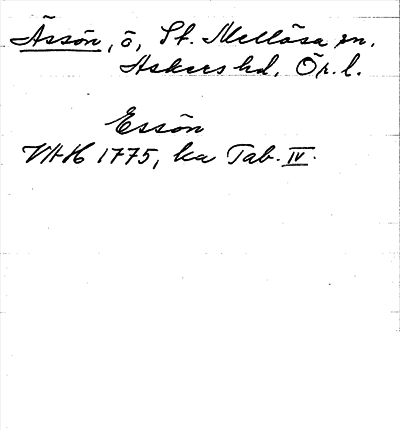 Ässön, ö, St. Mellösa sn.
Askers hd. Ör. l.
Essön
VAH 1775, ka Tab. IV.